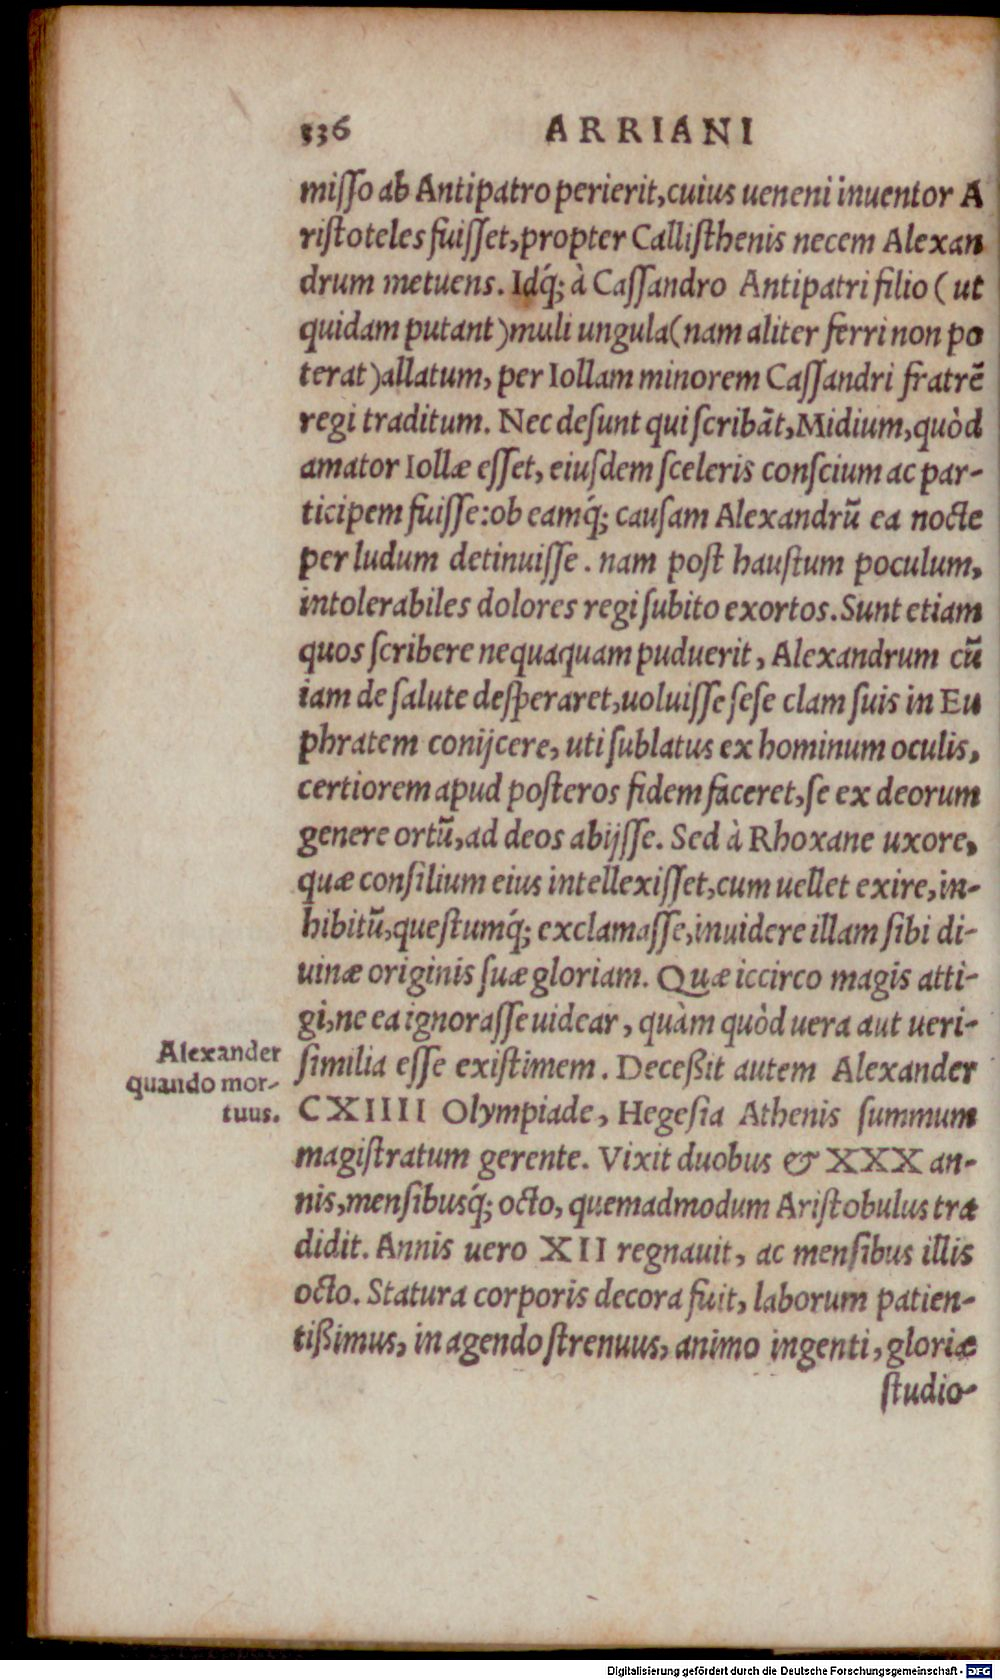 336 ARRIANI
miſſo ab Antipatro perierit, cuius ueneni inuentor A
riſtoteles fuiſſet, propter Calliſthenis necem Alexan
drum metuens. Idq́; à Caſſandro Antipatri filio ( ut
quidam putant ) muli ungula ( nam aliter ferri non po
terat ) allatum, per Iollam minorem Caſſandri fratrē
regi traditum. Nec deſunt qui ſcribāt, Midium, quòd
amator Iollæ eſſet, eiuſdem ſceleris conſcium ac par-
ticipem fuiſſe: ob eamq́; cauſam Alexandrū ea nocte
per ludum detinuiſſe. nam poſt hauſtum poculum,
intolerabiles dolores regi ſubito exortos. Sunt etiam
quos ſcribere nequaquam puduerit, Alexandrum cū
iam de ſalute deſperaret, uoluiſſe ſeſe clam ſuis in Eu
phratem conijcere, uti ſublatus ex hominum oculis,
certiorem apud poſteros fidem faceret, ſe ex deorum
genere ortū, ad deos abijſſe. Sed à Rhoxane uxore,
quæ conſilium eius intellexiſſet, cum uellet exire, in-
hibitū, queſtumq́; exclamaſſe, inuidere illam ſibi di-
uinæ originis ſuæ gloriam. Quæ iccirco magis atti-
gi, ne ea ignoraſſe uidear, quàm quòd uera aut ueri-
ſimilia eſſe exiſtimem. Deceßit autem Alexander
CXIIII Olympiade, Hegeſia Athenis ſummum
magiſtratum gerente. Vixit duobus & XXX an-
nis, menſibusq́; octo, quemadmodum Ariſtobulus tra
didit. Annis uero XII regnauit, ac menſibus illis
octo. Statura corporis decora fuit, laborum patien-
tißimus, in agendo ſtrenuus, animo ingenti, gloriæ
ſtudio-
Alexander
quando mor-
tuus.
Digitalisierung gefördert durch die Deutsche Forschungsgemeinschaft - DFG